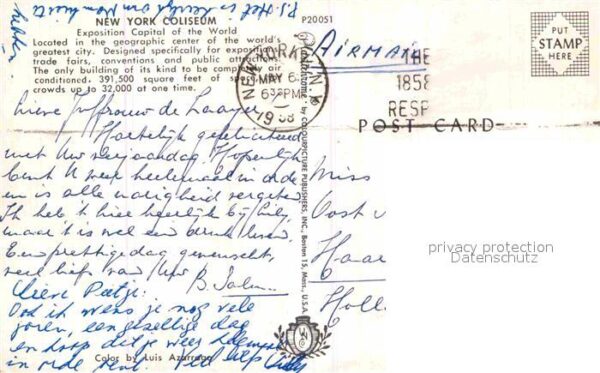 NEW YORK COLISEUM
Exposition Capital of the World
Located in the geographic center of the world's
greatest city. Designed specifically for expositions,
trade fairs, conventions and public attractions.
The only building of its kind to be completely air
conditioned. 391,500 square feet of space
crowds up to 32,000 at one time.
P20051
P.S. Het is
AIRMAIL
PUT
STAMP
HERE
NEW YORK, N.Y.
MAY 6
6 30 PM
1958
THE
1858
RESP
POST CARD
Lieve Juffrouw de
Hartelijk gefeliciteerd
met Uw verjaardag. Hopenlijk
bent U weer helemaal in orde
en is alle narigheid vergeten
Ik heb 't hier heerlijk bij Lily,
maar 't is wel een druk leven.
Een prettige dag gewenscht,
veel liefs van Uw
B.
Lieve Pietje.
Ook ik wens je nog vele
jaren, een gezellige dag
en hoop dat je weer helemaal
in orde bent. Veel liefs Lily
Color by Luis Azarraga
by COLOURPICTURE PUBLISHERS, INC., Boston 15, Mass., U.S.A.
Miss
Oost
Haar
Holl
privacy protection
Datenschutz